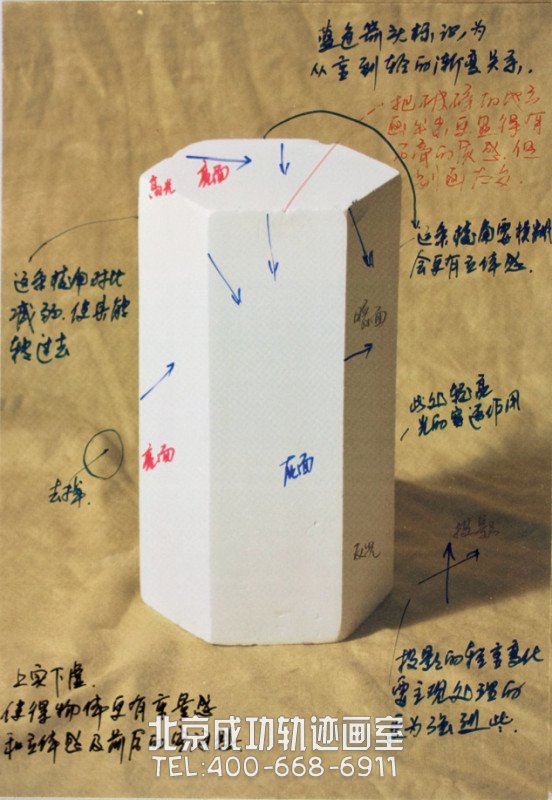 蓝色箭头标识,为
从重到轻的渐变关系.
把破碎的地方
画出来,更显得有
石膏的质感.但
别画太多
高光
亮面
这条棱角要模糊
会更有立体感.
这条棱角对比
减弱.使其能
转过去
暗面
此处轻亮
光的穿透作用
亮面
灰面
去掉.
投影
反光
投影的轻重变化
需主观处理的
更为强烈些.
上实下虚.
使得物体更有重量感
和立体感及前后的
北京成功轨迹画室
TEL:400-668-6911